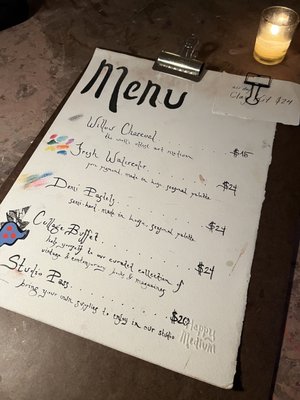 Menu
Willow Charcoal
the world's oldest art medium
$18
Fresh Watercolor
pure pigment, made in house, seasonal palette
$24
Demi Pastels
semi-hard, made in house, seasonal palette
$24
Collage Buffet
help yourself to our curated collection of
vintage & contemporary books & magazines
$24
Studio Pass
bring your own supplies to enjoy in our studio
$20
Happy
Medium
$24